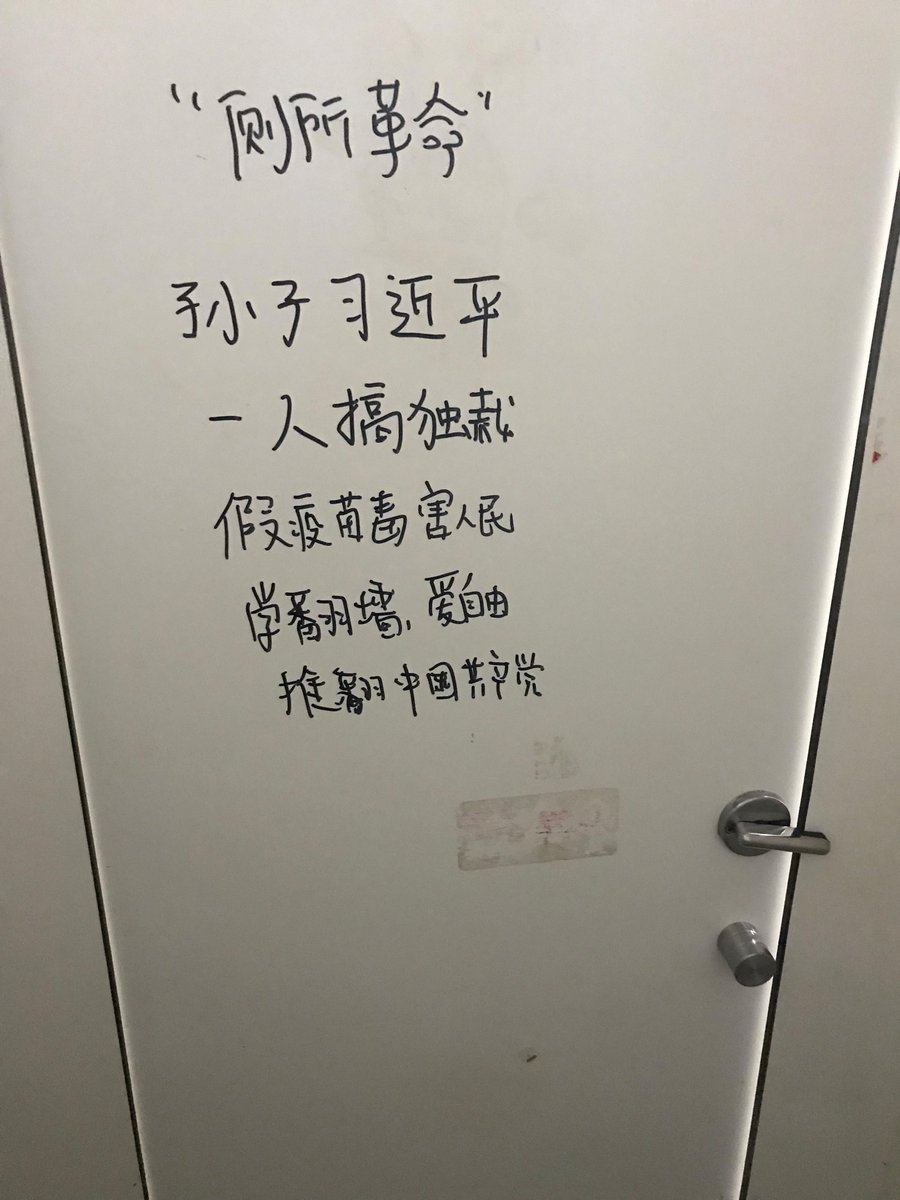 “厕所革命”
孙子习近平
一人搞独裁
假疫苗毒害人民
学翻墙，爱自由
推翻中国共产党